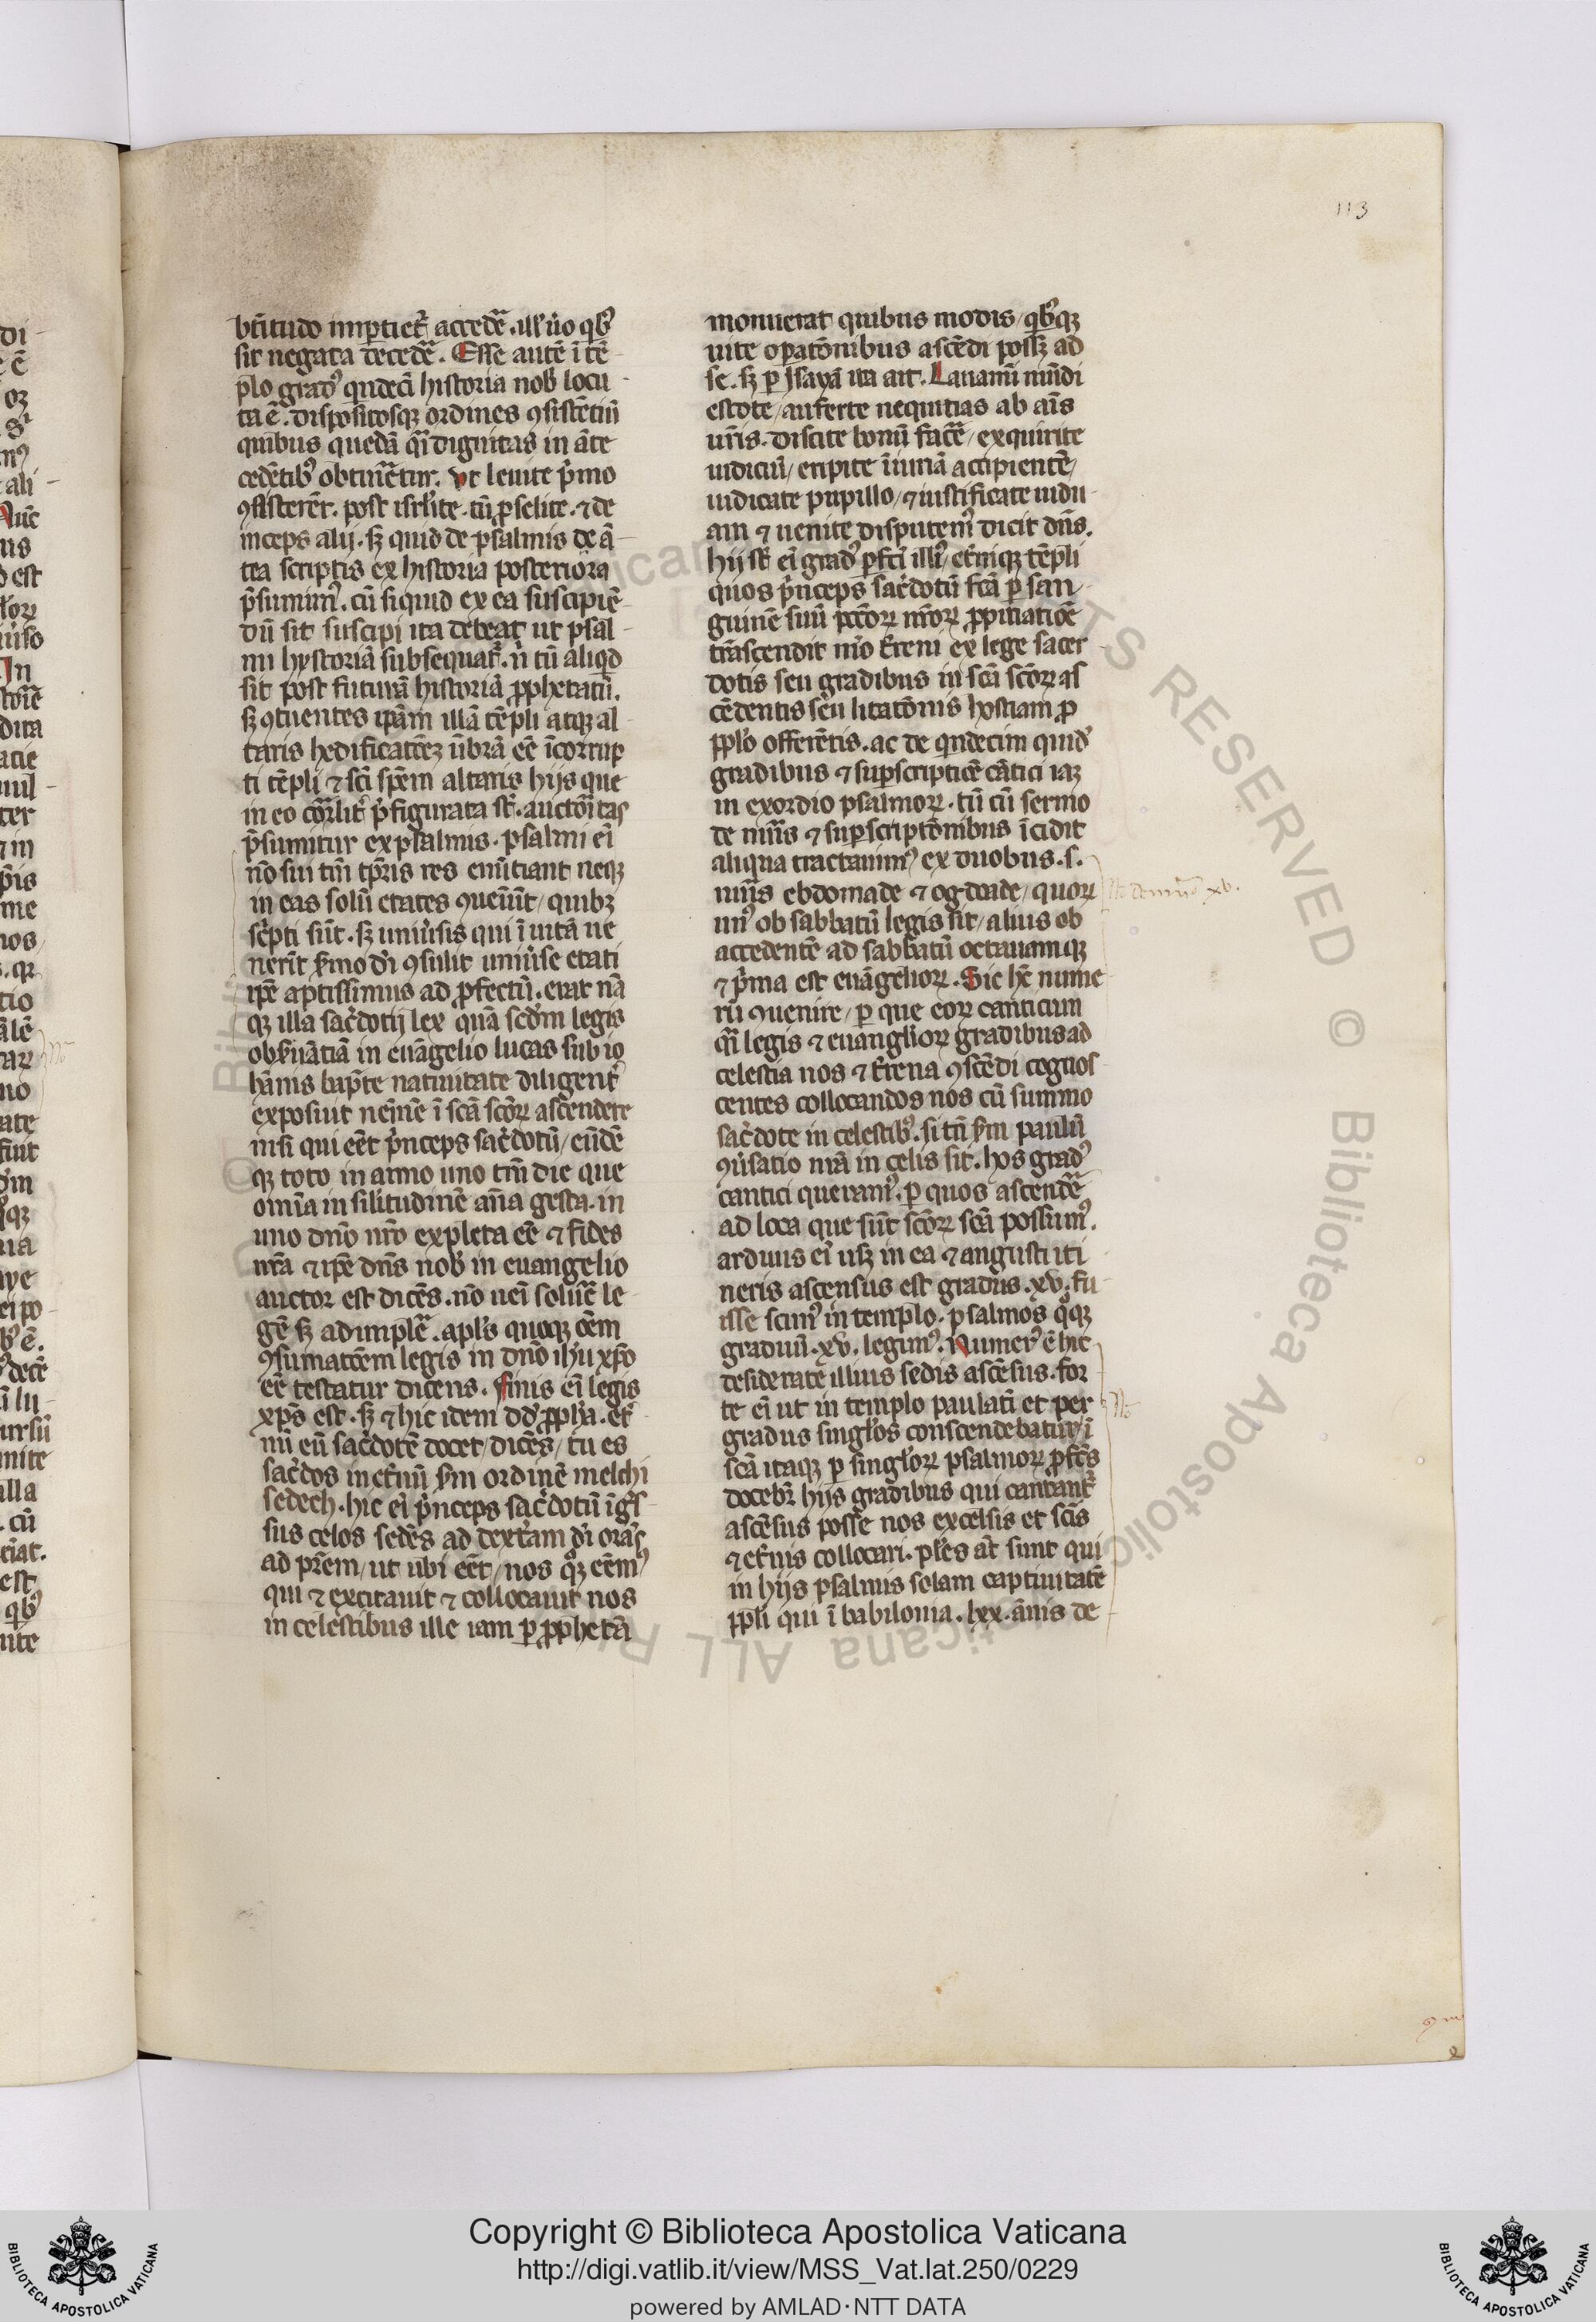 113
bt̄itudo imꝑtiet᷑ accedẽ. ill' u̾o qb᷒
sit negata decedẽ. Esse autē ī tē-
plo grad᷒ qͥndeci historia nob̾ locu-
ta ē. dispositosqꝫ ordines ꝯsistētiū
quibus quedā qͣi dignitas in āte
cedētib᷒ obtinẽtur. vt leuite pͥmo
ꝯsisterēt. post isrl'ite. tū ꝓselite. ⁊ de
inceps alij. sꝫ quid de psalmis de ā-
tea scriptis ex historia posteriora
p̄sumim᷒. cū siquid ex ea suscipiē-
dū sit suscipi ita debeat ut psal-
mi hystoriā subsequat᷑. n̄ tū aliqͥd
sit post futurā historiā ꝓphetatū.
sꝫ ꝯtuentes ip̄am illā tēpli atqꝫ al-
taris hedificatōeꝫ ūbrā eē īcorrup
ti tēpli ⁊ sc̄i sp̄em altaris hijs que
in eo cōrͣlit᷑ p̄figurata st̄. auctorͥtas
p̄sumitur ex psalmis. psalmi ei
nō sui tm̄ tp̄ris res enūtiant neqꝫ
in eas solū etates ꝯueniūt/ quibꝫ
scͥpti sūt. sꝫ uniu̾sis qui ī uitā ue
nerīt s̾mo di ꝯsulit uniu̾se etati
ip̄e aptissimus ad ꝓfectū. erat nā
qꝫ illa sac̾dotij lex quā scd̄m legis
obs̾uātiā in euāgelio lucas sub io
hānis bap̄te natiuitate diligent᷑
exposuit nemīnē ī sc̄a sc̄oꝝ ascendere
nisi qui eēt pͥnceps sac̾dotū/ eūdē
qꝫ toto in anno uno tm̄ die que
omīa in silitudinē aīa gesta. in
uno dn̄o nr̄o expleta eē ⁊ fides
nr̄a ⁊ ip̄e dn̄s nob̾ in euangelio
auctor est dicēs. nō ueī soluẽ le-
gē sꝫ adimplẽ. apl's quoqꝫ oēm
ꝯsumatōem legis in dn̄o ihū xp̄o
eē testatur dicens. Finis eī legis
xp̄s est. sꝫ ⁊ hic idem dd̾ ꝓph̄a. et̾
nū eū sac̾dotē docet/ dicēs/ tu es
sac̾dos in et̾nū s̾m ordinē melchi
sedech. hic eī pͥnceps sac̾dotū īgr̄s-
sus celos sedēs ad dext̾am di oraſ
ad pr̄em/ ut ubi eēt/ nos qͦꝫ eēm᷒
qui ⁊ excitauit ⁊ collocauit nos
in celestibus ille iam ꝑ ꝓphetā
monuerat quibus modis/ qb᷒qꝫ
uite oꝑatōnibus ascēdi possꝫ ad
se. sꝫ ꝑ Jsayā ita ait. Lauamī mūdi
estote/ auferte nequitias ab aīs
ur̄is. discite bonū facẽ/ exquirite
iudiciū/ eripite īiuriā accipientē/
iudicate pupillo/ ⁊ iustificate uidu-
am ⁊ uenite disputem᷒ dicit dn̄s.
hij st̄ eī grad᷒ ꝑfct̄i illi᷒/ et̾niqꝫ tēpli
quos pͥnceps sac̾dotū fct̄ā ꝑ san-
guinē suū pctōꝝ nr̄oꝝ ꝓpitiatiōē
trāscendit mō et̾reni ex lege sacer
dotis seu gradibus in sc̄a sc̄oꝝ as
cēdentis seu litatōnis hostiam ꝓ
ppl'o offerētis. ac de qͥndecim quid᷒
gradibus ⁊ suꝑscriptiōē cātici iaꝫ
in exordio psalmoꝝ. tū cū sermo
de nūis ⁊ suꝑscriptōnibus īcidit
aliqua tractauim᷒ ex duobus. s.
nūis ebdomade ⁊ ogdoade/ quoꝝ
un᷒ ob sabbatū legis sit/ alius ob
accedentē ad sabbatū octauamqꝫ
⁊ pͥma est euāgelioꝝ. Sic hē nume
rū ꝯuenire/ ꝑ que eoꝝ canticum
qͣi legis ⁊ euanglioꝝ gradibus ad
celestia nos ⁊ et̾rena ꝯscēdi cognos-
centes collocandos nos cū summo
sac̾dote in celestib᷒. si tn̄ s̾m paulū
ꝯu̾satio nr̄a in celis sit. hos grad᷒
cantici queram᷒. ꝑ quos ascendẽ
ad loca que sūt sc̄oꝝ sc̄a possum᷒.
arduus eī usꝫ in ea ⁊ angusti iti
neris ascensus est gradus. xv. fu-
isse scim᷒ in templo. psalmos qͦqꝫ
graduū. xv. legim᷒. Numer᷒ ē hic
desideratē illius sedis ascēsus. for
te eī ut in templo paulatī et per
gradus singl'os conscendebatur/ ī
sc̄a itaqꝫ ꝑ singl'oꝝ psalmoꝝ ꝓfc̄s
docebr̄ hijs gradibus qui cantant᷑
ascēsus posse nos excelsis et sc̄is
⁊ et̾nis collocari. pl'es at̄ sunt qui
in hijs psalmis solam captiuitatē
ppl'i qui ī babilonia. lxx. ānis de-
Copyright © Biblioteca Apostolica Vaticana
http://digi.vatlib.it/view/MSS_Vat.lat.250/0229
powered by AMLAD·NTT DATA
BIBLIOTECA APOSTOLICA VATICANA
BIBLIOTECA APOSTOLICA VATICANA